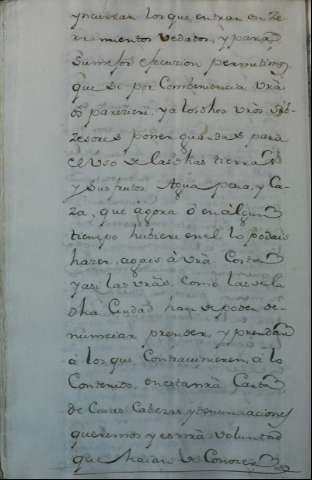 yncursan los que entran en ze-
rramientos vedados, y para
su mejor ejecucion permitimos
que si por Combeniencia vrã
os pareziere, ya los dhos vros Sub-
zesores poner guardas para
el vso de las dhas tierras
y sus frutos Agua, y Ca-
za, que agora ô en algun
tiempo hubiere en el lo podais
hazer, agais â vrã Costa
y asi las vrãs, como las de la
dha Ciudad han de poder de-
nunciar prender, y prendan
â los que Contravinieren, â lo
Contenido, en esta nrã Carta
de Cuias Causas y denunciaciones
queremos y es nrã voluntad
que haian de Conozer